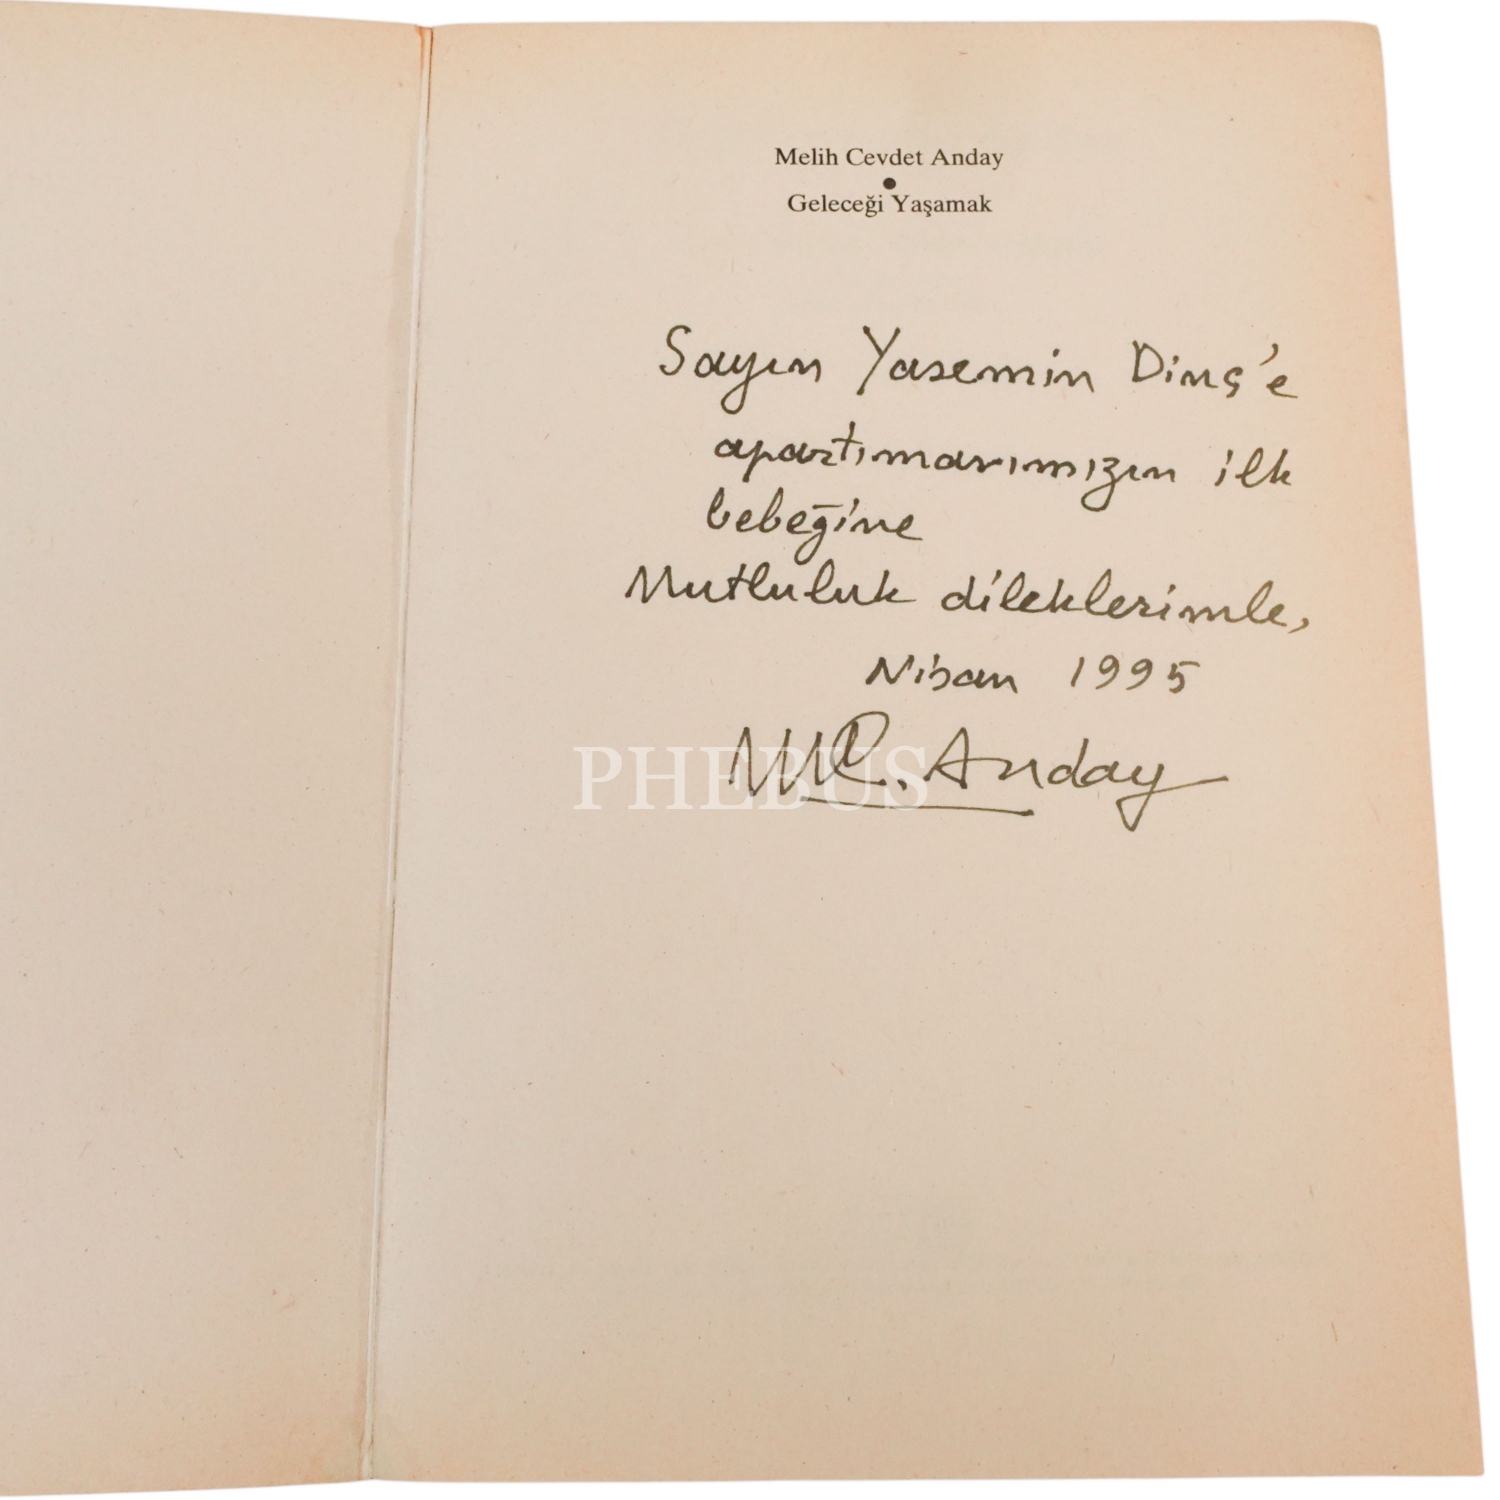 Melih Cevdet Anday
●
Geleceği Yaşamak
Sayın Yasemin Dinç'e
apartımanımızın ilk
bebeğine
Mutluluk dileklerimle,
Nisan 1995
MC. Anday
PHEBUS